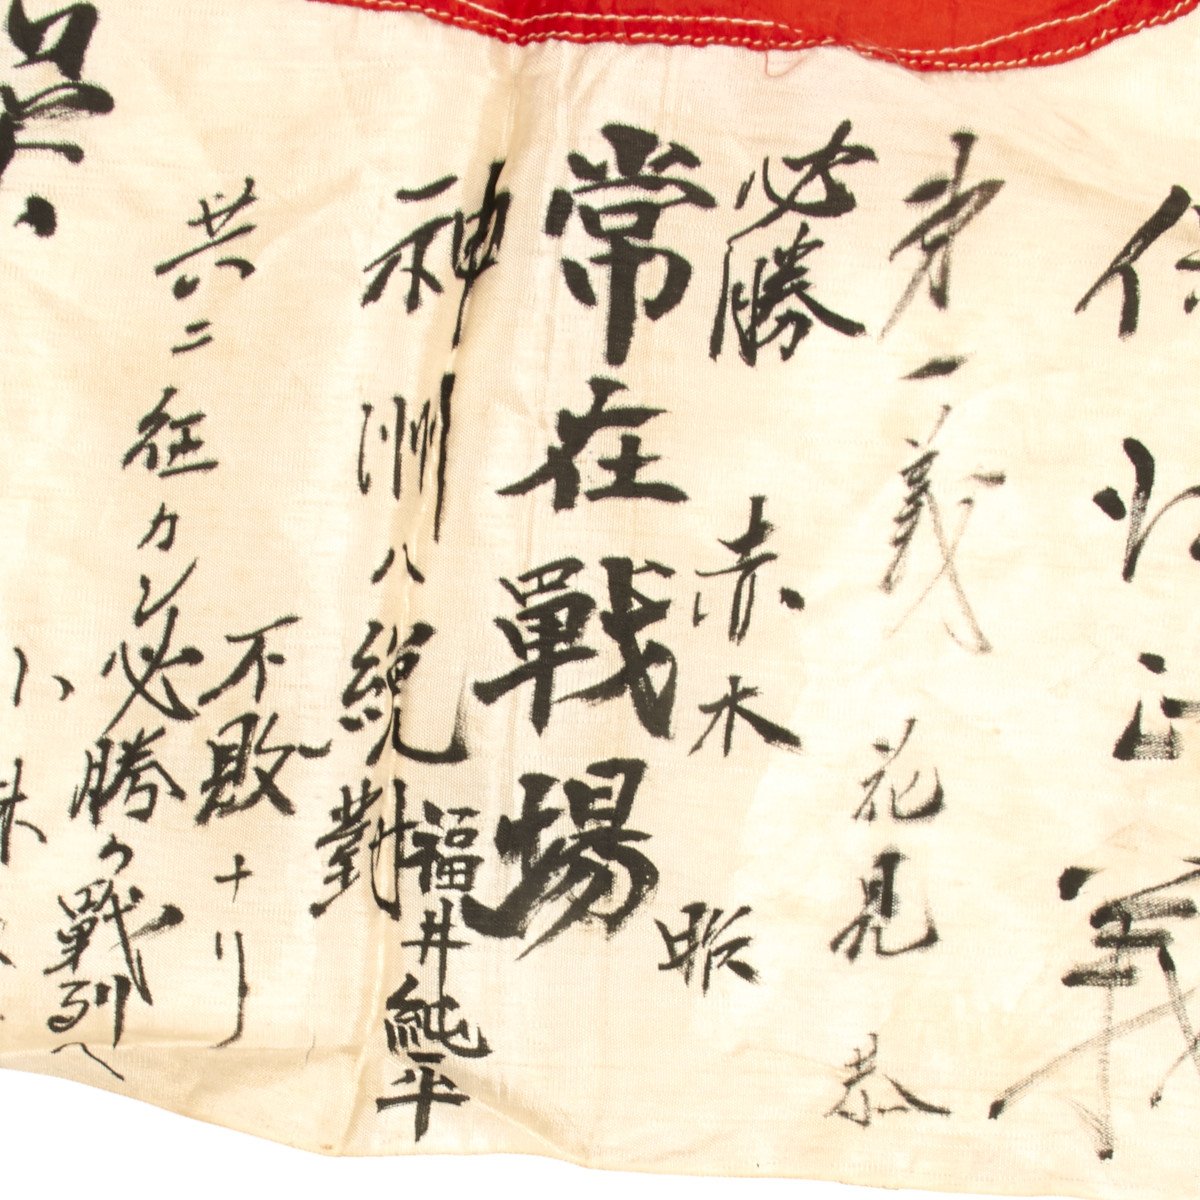 義
第一義
花見 恭
必勝
赤木
常在戰場
福井純平
神州ハ絶對
不敗ナリ
共ニ征カン
必勝ノ戰列ヘ